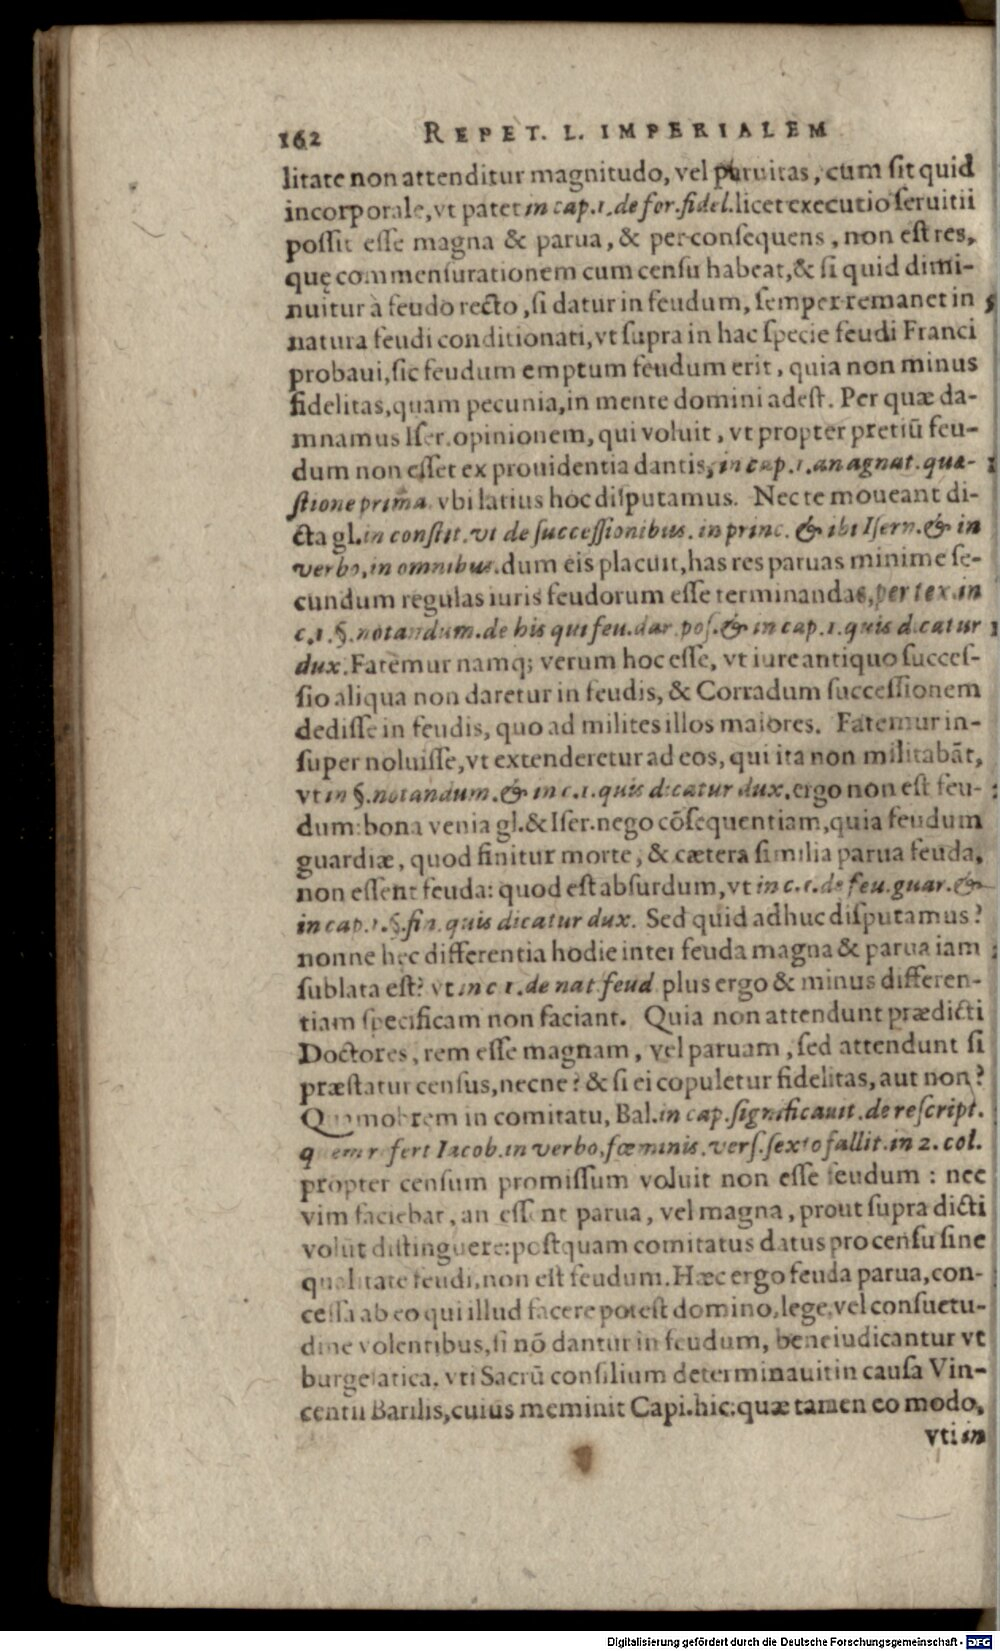 162 REPET. L. IMPERIALEM
litate non attenditur magnitudo, vel paruitas, cum sit quid
incorporale, vt patet in cap. 1. de for. fidel. licet executio seruitii
possit esse magna & parua, & per consequens, non est res,
quę commensurationem cum censu habeat, & si quid dimi-
nuitur à feudo recto, si datur in feudum, semper remanet in
natura feudi conditionati, vt supra in hac specie feudi Franci
probaui, sic feudum emptum feudum erit, quia non minus
fidelitas, quam pecunia, in mente domini adest. Per quæ da-
mnamus Iser. opinionem, qui voluit, vt propter pretiū feu-
dum non esset ex prouidentia dantis, in cap. 1. an agnat. quæ-
stione prima. vbi latius hoc disputamus. Nec te moueant di-
cta gl. in constit. vt de successionibus. in princ. & ibi Isern. & in
verbo, in omnibus. dum eis placuit, has res paruas minime se-
cundum regulas iuris feudorum esse terminandas, per tex. in
c. 1. §. notandum. de his qui feu. dar. pos. & in cap. 1. quis dicatur
dux. Fatemur namq; verum hoc esse, vt iure antiquo succes-
sio aliqua non daretur in feudis, & Corradum successionem
dedisse in feudis, quo ad milites illos maiores. Fatemur in-
super noluisse, vt extenderetur ad eos, qui ita non militabāt,
vt in §. notandum. & in c. 1. quis dicatur dux. ergo non est feu-
dum: bona venia gl. & Iser. nego cōsequentiam, quia feudum
guardiæ, quod finitur morte, & cætera similia parua feuda,
non essent feuda: quod est absurdum, vt in c. 1. de feu. guar. &
in cap. 1. §. fin. quis dicatur dux. Sed quid adhuc disputamus?
nonne hęc differentia hodie inter feuda magna & parua iam
sublata est? vt in c 1. de nat. feud. plus ergo & minus differen-
tiam specificam non faciant. Quia non attendunt prædicti
Doctores, rem esse magnam, vel paruam, sed attendunt si
præstatur census, necne? & si ei copuletur fidelitas, aut non?
Quamobrem in comitatu, Bal. in cap. significauit. de rescript.
quem refert Iacob. in verbo, fœminis. vers. sexto fallit. in 2. col.
propter censum promissum voluit non esse feudum: nec
vim faciebat, an essent parua, vel magna, prout supra dicti
volūt distinguere: postquam comitatus datus pro censu sine
qualitate feudi, non est feudum. Hæc ergo feuda parua, con-
cessa ab eo qui illud facere potest domino, lege, vel consuetu-
dine volentibus, si nō dantur in feudum, bene iudicantur vt
burgesatica. vti Sacrū consilium determinauit in causa Vin-
centii Barilis, cuius meminit Capi. hic: quæ tamen eo modo,
vti in
Digitalisierung gefördert durch die Deutsche Forschungsgemeinschaft - DFG